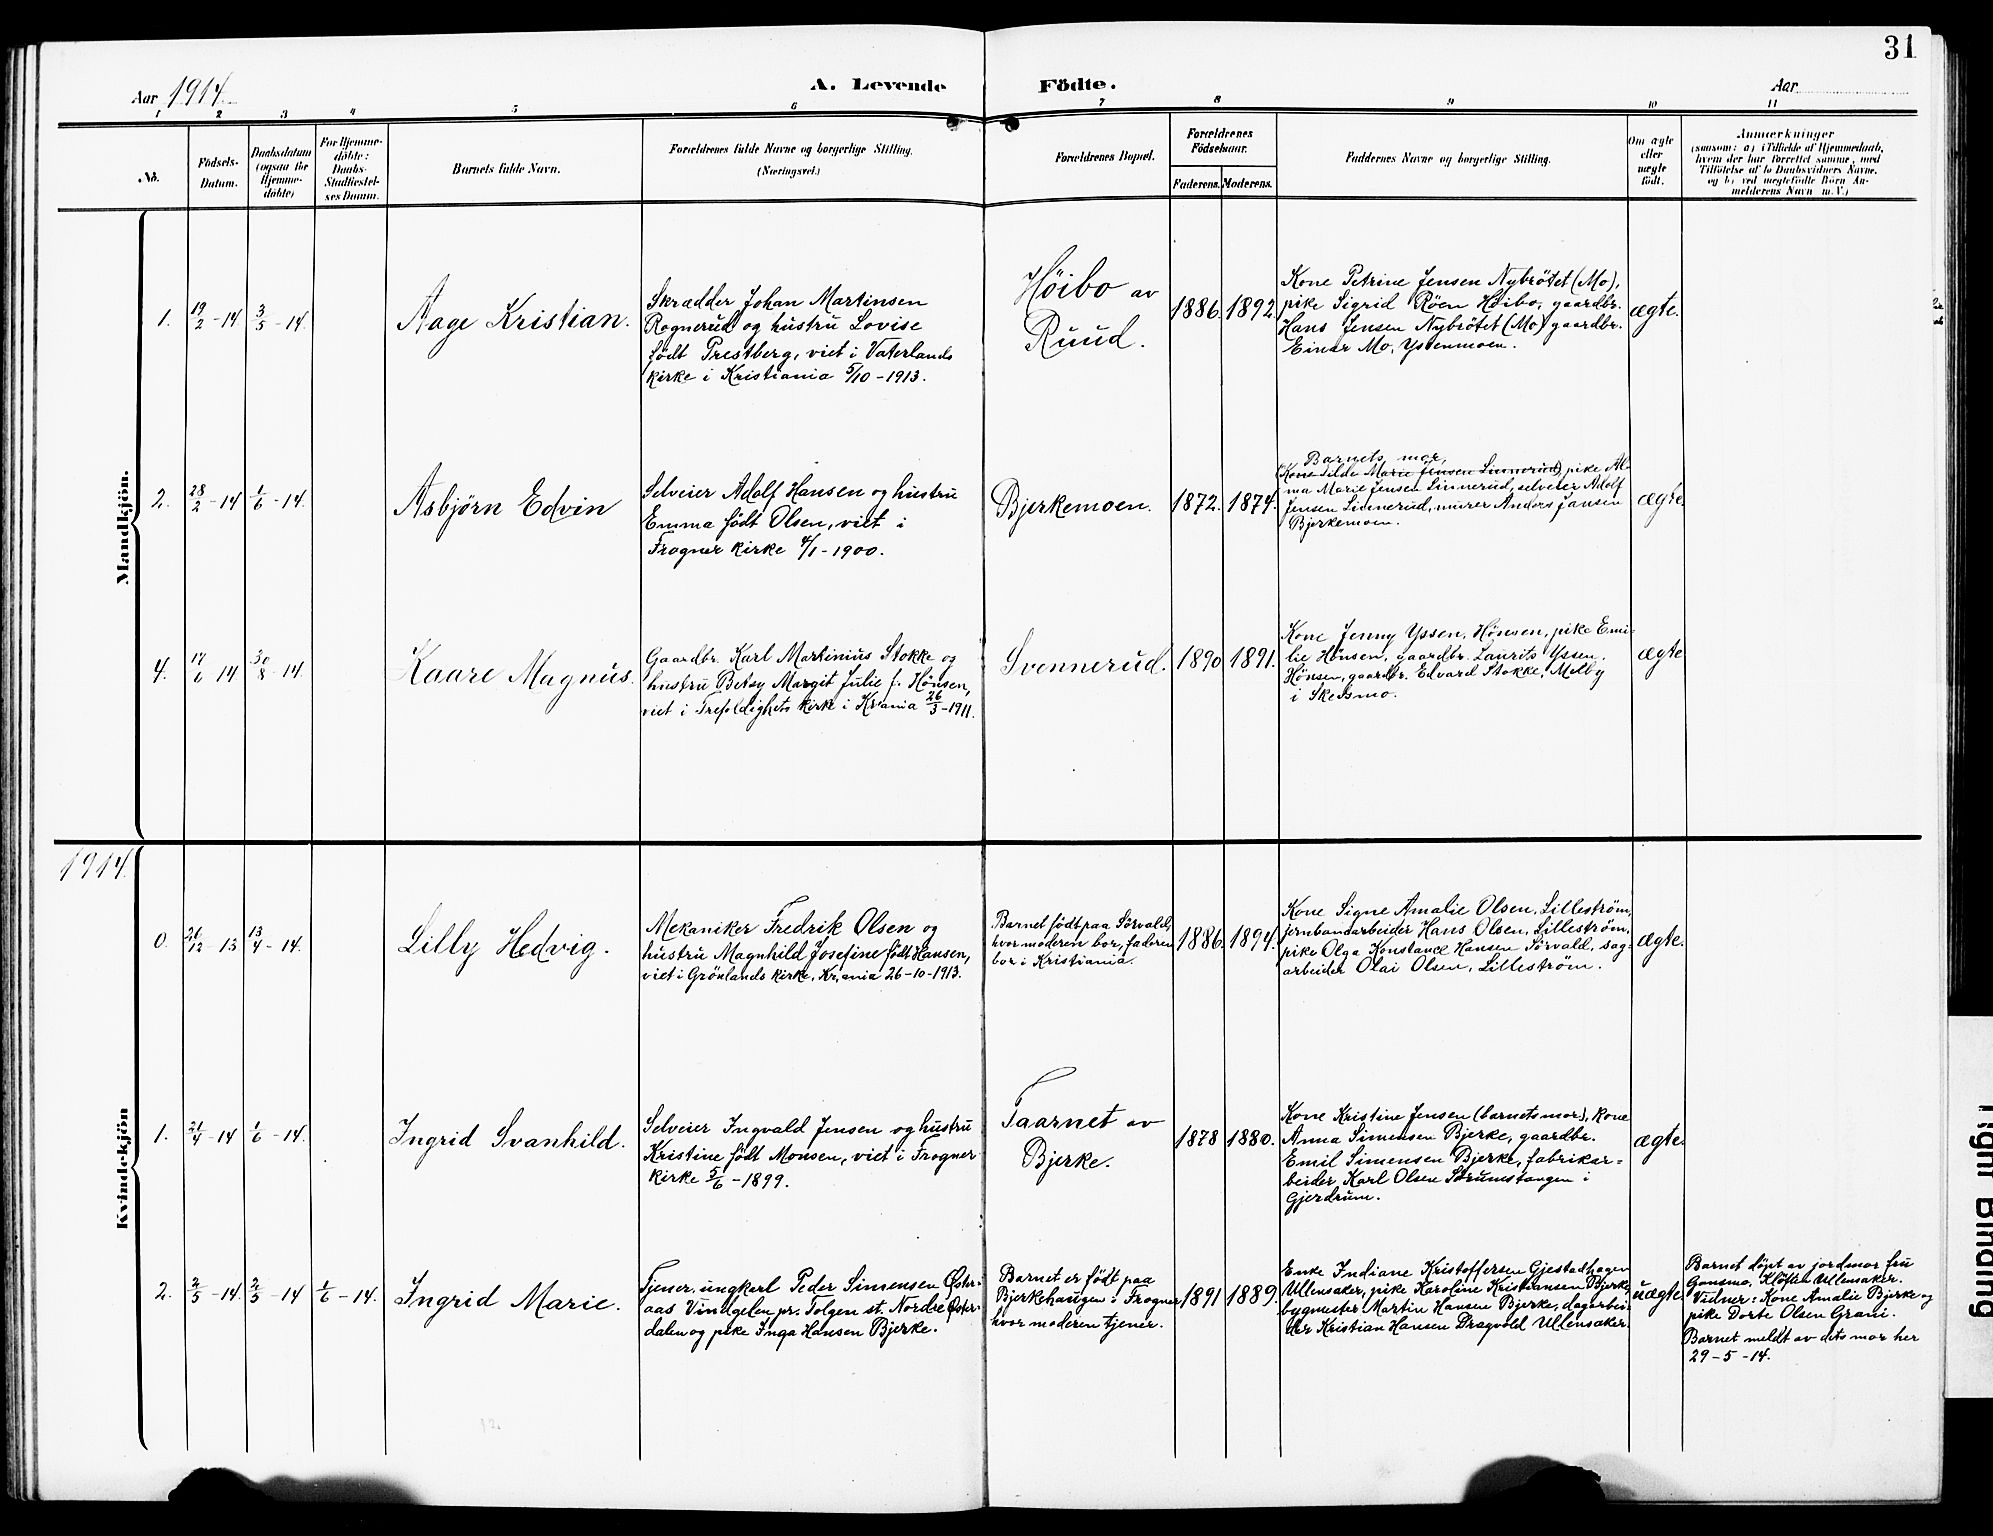 31
Aar 1914.
A. Levende Födte.
Aar
1 2 3 4 5 6 7 8 9 10 11
No.
Födsels-
Datum.
Daabsdatum
(ogsaa for
Hjemme-
döbte)
For Hjemme-
döbte:
Daabs-
Stadfæstel-
ses Datum.
Barnets fulde Navn.
Forældrenes fulde Navne og borgerlige Stilling.
(Næringsvei.)
Forældrenes Bopæl.
Forældrenes
Födselsaar.
Faderens. Moderens.
Faddernes Navne og borgerlige Stilling.
Om ægte
eller
uægte
født.
Anmærkninger
(saasom: a) i Tilfælde af Hjemmedaab,
hvem der har forrettet samme, med
Tilföielse af to Daabsvidners Navne,
og b) ved uægtefödte Börn An-
melderens Navn m. V.)
Mandkjön.
1.
19/2 - 14
3/5 - 14.
Aage Kristian.
Skrædder Johan Martinsen
Rognerud og hustru Lovise
født Prestberg, viet i Vaterlands
kirke i Kristiania 5/10 - 1913.
Høibo av
Ruud.
1886. 1892.
Kone Petrine Jensen Nybrötet (Mo),
pike Sigrid Røen Høibo, gaardbr.
Hans Jensen Nybrötet (Mo) gaardbr.
Einar Mo, Ystenmoen.
ægte.
2.
28/2 - 14
1/6 - 14.
Asbjørn Edvin
Selveier Adolf Hansen og hustru
Emma født Olsen, viet i
Frogner kirke 4/1 - 1900.
Bjerkemoen.
1872. 1874.
Barnets mor,
(Kone Tilde Marie Jensen Linnerud), pike Al-
ma Marie Jensen Linnerud, selveier Adolf
Jensen Linnerud, murer Anders Jansen
Bjerkemoen.
ægte.
4.
17/6 - 14
30/8 - 14.
Kaare Magnus.
Gaardbr. Karl Martinius Stokke og
hustru Betsy Margit Julie f. Hønsen,
viet i Trefoldighets kirke i Kr.ania 26/3 - 1911.
Svennerud.
1890 1891.
Kone Jenny Yssen, Hønsen, pike Emi-
lie Hønsen, gaardbr. Laurits Yssen,
Hønsen, gaardbr. Edvard Stokke, Melby
i Skedsmo.
ægte
1914.
Kvindekjön
0.
26/12 - 13
13/4 - 14.
Lilly Hedvig.
Mekaniker Fredrik Olsen og
hustru Magnhild Josefine født Hansen,
viet i Grönlands kirke, Kr.ania 26-10-1913.
Barnet født paa Sörvald,
hvor moderen bor, faderen
bor i Kristiania.
1886. 1894.
Kone Signe Amalie Olsen, Lilleström,
jernbanearbeider Hans Olsen, Lilleström,
pike Olga Konstance Hansen Sörvald, sag-
arbeider Olai Olsen, Lilleström.
ægte.
1.
21/4 - 14
1/6 - 14.
Ingrid Svanhild.
Selveier Ingvald Jensen og hustru
Kristine født Monsen, viet i Frogner
kirke 5/6 - 1899.
Taarnet av
Bjerke.
1878 1880.
Kone Kristine Jensen (barnets mor), kone
Anna Simensen Bjerke, gaardbr.
Emil Simensen Bjerke, fabrikar-
beider Karl Olsen Strumstangen i
Gjerdrum.
ægte.
2.
2/5 - 14.
2/5 - 14
1/6 - 14.
Ingrid Marie.
Tjener, ungkarl Peder Simensen Øster-
aas Vingelen pr. Tolgen st. Nordre Øster-
dalen og pike Inga Hansen Bjerke.
Barnet er født paa
Bjerkehaugen i Frogner
hvor moderen tjener.
1891 1889.
Enke Indiane Kristoffersen Gjestadhagen
Ullensaker, pike Karoline Kristiansen Bjerke,
bygmester Martin Hansen Bjerke, dagarbei-
der Kristian Hansen Dragvold Ullensaker.
uægte
Barnet døpt av jordmor fru
Gansmo, Kløften Ullensaker.
Vidner: Kone Amalie Bjerke og
pike Dorte Olsen Grani.
Barnet meldt av dets mor her
29 - 5 - 14.
Tight Binding